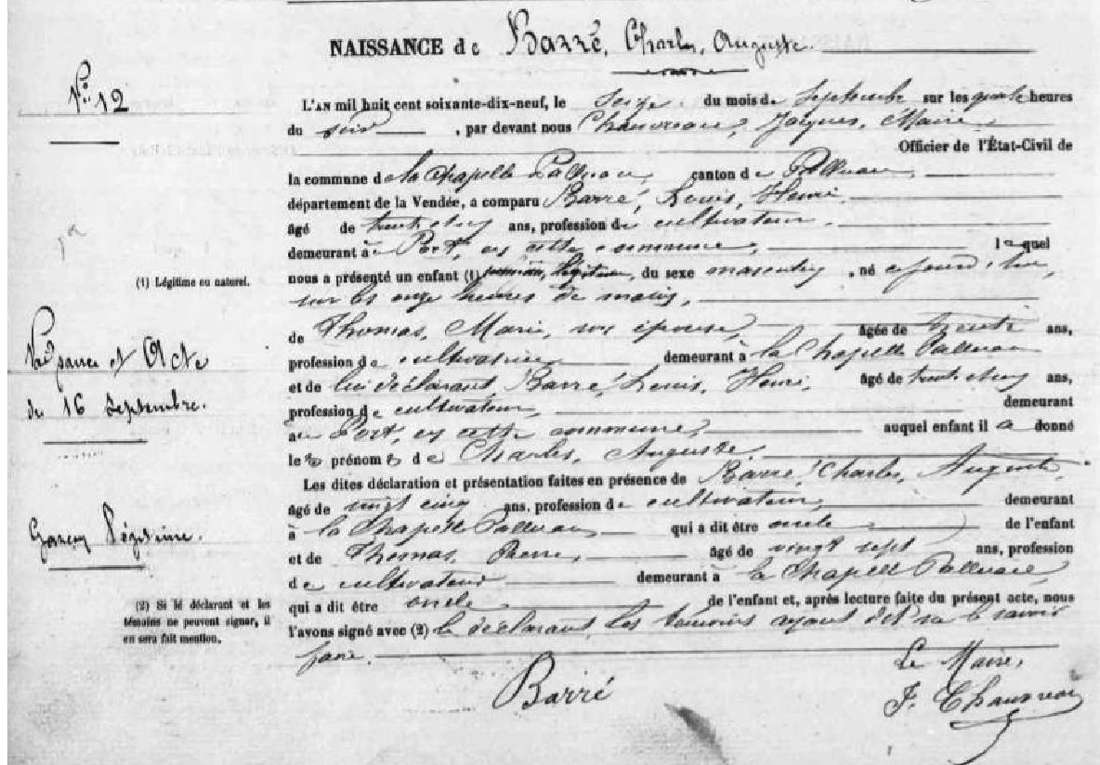 NAISSANCE de Barré, Charles, Auguste
No 12
L'AN mil huit cent soixante-dix-neuf, le seize du mois de septembre sur les quatre heures
du soir, par devant nous Chauvreau, Jacques, Maire
Officier de l'État-Civil de
la commune de la Chapelle Palluau, canton de Palluau,
département de la Vendée, a comparu Barré, Louis, Henri,
âgé de trente cinq ans, profession de cultivateur
demeurant à Port, en cette commune, lequel
nous a présenté un enfant (1) légitime, du sexe masculin, né ce jourd'hui,
(1) Légitime ou naturel.
sur les onze heures du matin,
de Thomas, Marie, son épouse, âgée de trente ans,
profession de cultivatrice demeurant à la Chapelle Palluau
et de lui déclarant, Barré, Louis, Henri, âgé de trente cinq ans,
profession de cultivateur, demeurant
au Port, en cette commune, auquel enfant il a donné
le s prénom s de Charles, Auguste.
Naissance et Acte
du 16 septembre.
Les dites déclaration et présentation faites en présence de Barré, Charles, Auguste,
âgé de vingt cinq ans, profession de cultivateur, demeurant
à la Chapelle Palluau qui a dit être oncle de l'enfant
et de Thomas, Pierre, âgé de vingt sept ans, profession
de cultivateur demeurant à la Chapelle Palluau,
qui a dit être oncle de l'enfant et, après lecture faite du présent acte, nous
l'avons signé avec (2) le déclarant, les témoins ayant dit ne le savoir
faire.
Garçon légitime.
(2) Si le déclarant et les
témoins ne peuvent signer, il
en sera fait mention.
Le Maire,
Barré
J. Chauvreau